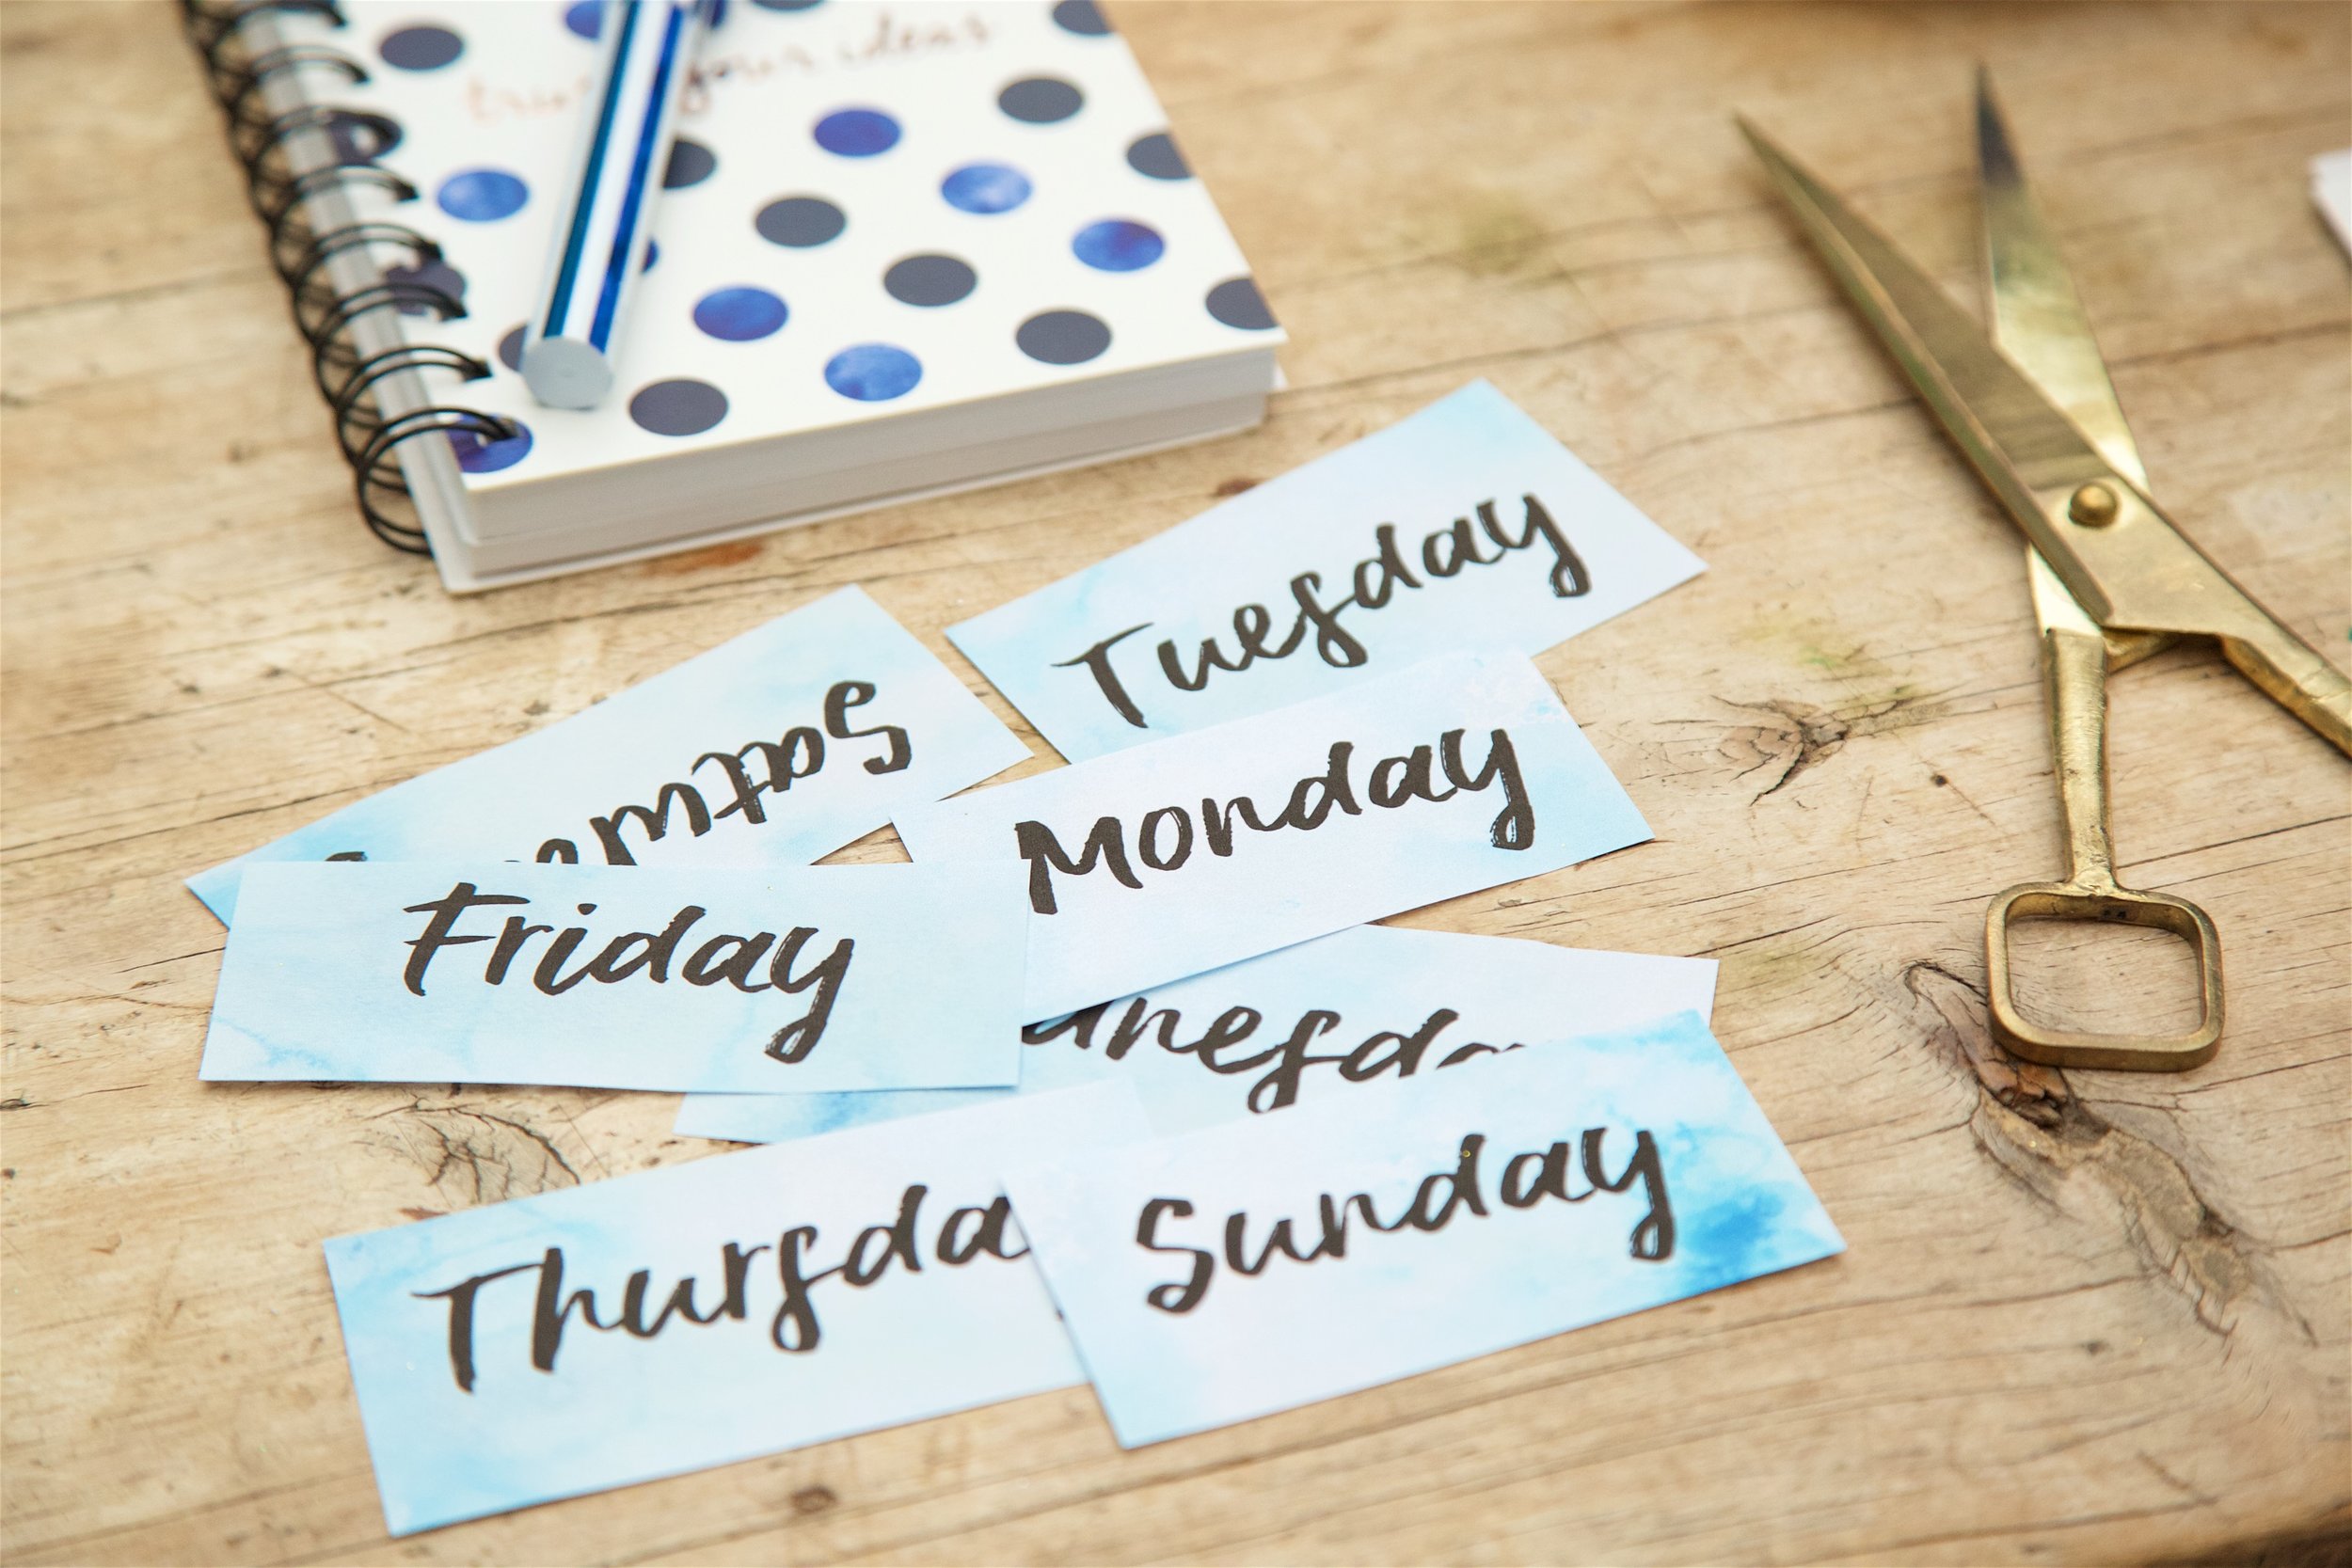 trust your ideas
Tuesday
Satur
Monday
Friday
dnesda
Thursda
Sunday